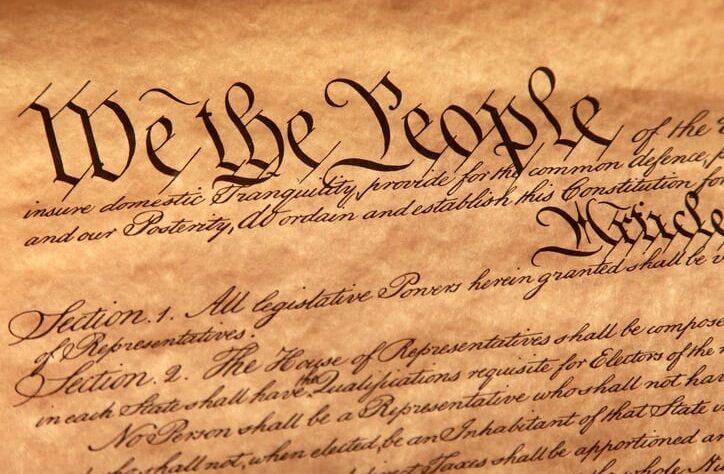 We the People of the
insure domestic Tranquility, provide for the common defence,
and our Posterity, do ordain and establish this Constitution for
Article
Section. 1. All legislative Powers herein granted shall be
of Representatives.
Section. 2. The House of Representatives shall be compose
in each State shall have the Qualifications requisite for Electors of the
No Person shall be a Representative who shall not ha
who shall not, when elected, be an Inhabitant of that State
Taxes shall be apportioned a
whole